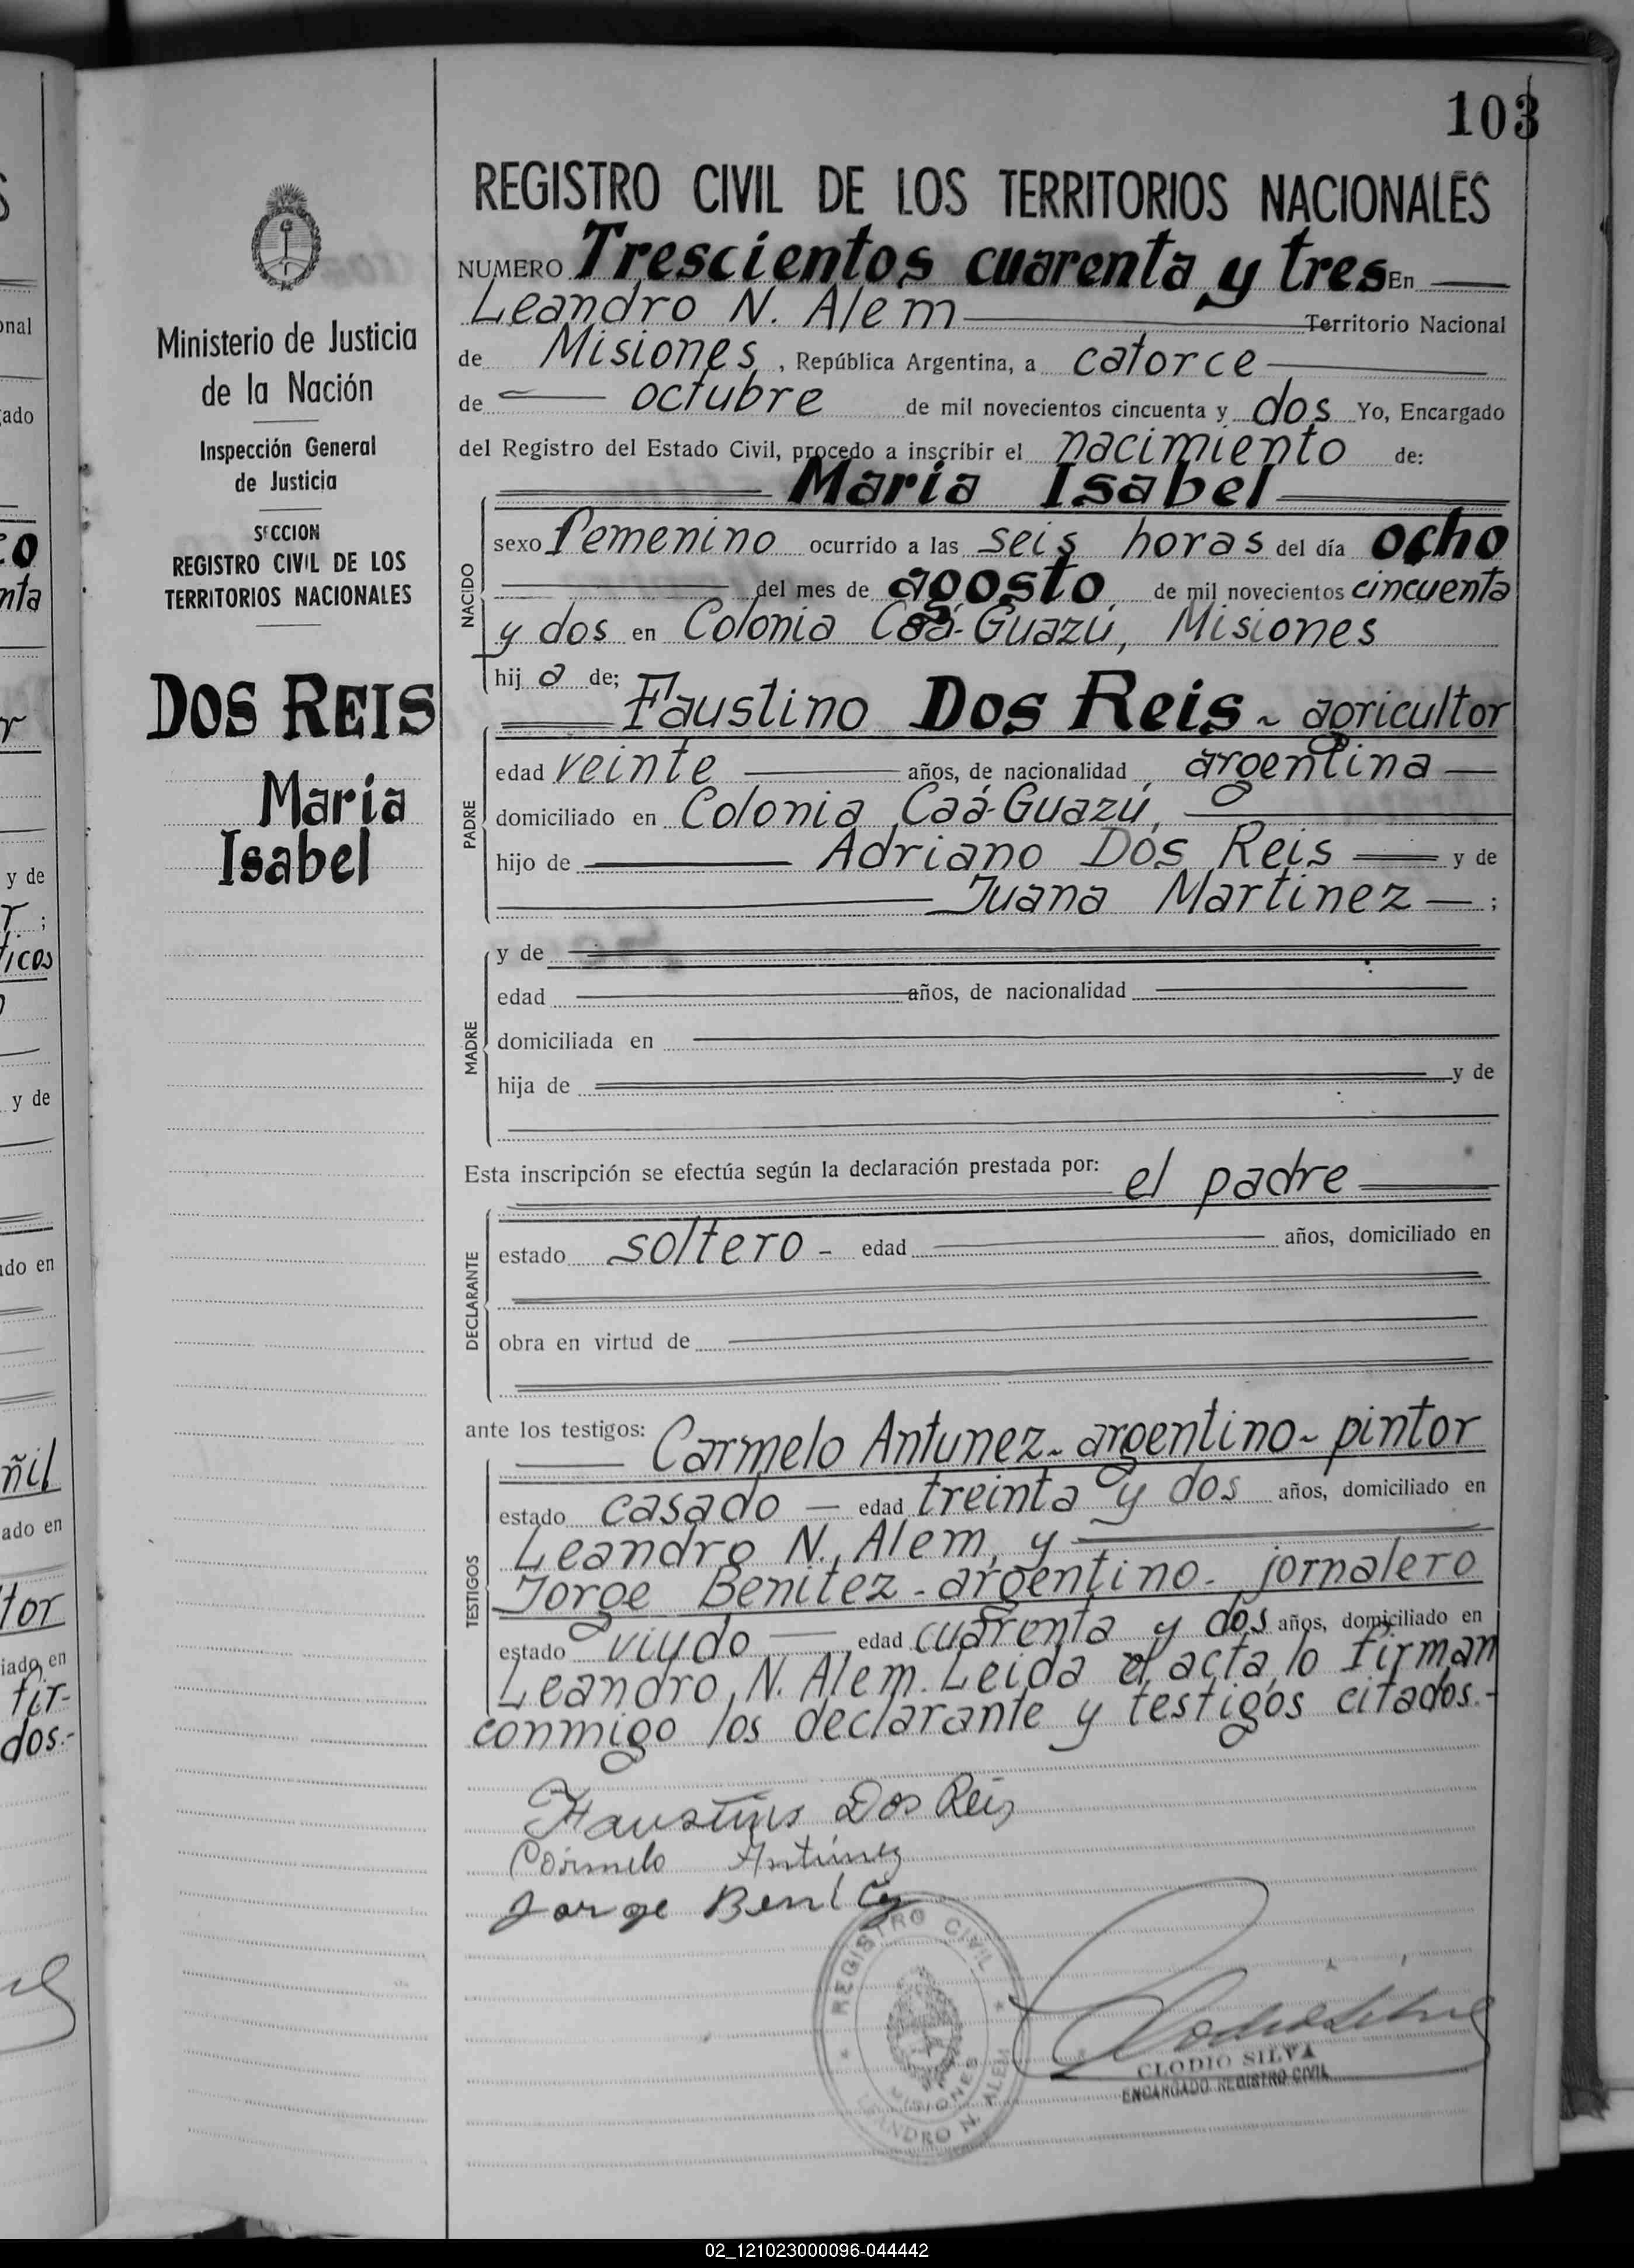 103
REGISTRO CIVIL DE LOS TERRITORIOS NACIONALES
NUMERO Trescientos cuarenta y tres En
Leandro N. Alem Territorio Nacional
de Misiones, República Argentina, a catorce
de octubre de mil novecientos cincuenta y dos Yo, Encargado
del Registro del Estado Civil, procedo a inscribir el nacimiento de:
Maria Isabel
NACIDO
sexo Femenino ocurrido a las seis horas del día ocho
del mes de agosto, de mil novecientos cincuenta
y dos en Colonia Caá-Guazú, Misiones
hij a de;
Faustino Dos Reis - agricultor
PADRE
edad veinte años, de nacionalidad argentina
domiciliado en Colonia Caá-Guazú,
hijo de Adriano Dos Reis y de
Juana Martinez ;
MADRE
y de
edad años, de nacionalidad
domiciliada en
hija de y de
Esta inscripción se efectúa según la declaración prestada por: el padre
DECLARANTE
estado soltero - edad años, domiciliado en
obra en virtud de
ante los testigos: Carmelo Antunez - argentino - pintor
TESTIGOS
estado casado - edad treinta y dos años, domiciliado en
Leandro N. Alem, y
Jorge Benitez - argentino - jornalero
estado viudo edad cuarenta y dos años, domiciliado en
Leandro N. Alem. Leida el acta, lo firman
conmigo los declarante y testigos citados.-
Faustino Dos Reis
Carmelo Antúnez
Jorge Benitez
REGISTRO CIVIL
MISIONES
LEANDRO N. ALEM
CLODIO SILVA
ENCARGADO REGISTRO CIVIL
Ministerio de Justicia
de la Nación
Inspección General
de Justicia
SECCION
REGISTRO CIVIL DE LOS
TERRITORIOS NACIONALES
DOS REIS
Maria
Isabel
onal
gado
co
nta
r
y de
r ;
ticos
y de
ado en
ñil
ado en
tor
iado en
fir-
dos.-
02_121023000096-044442